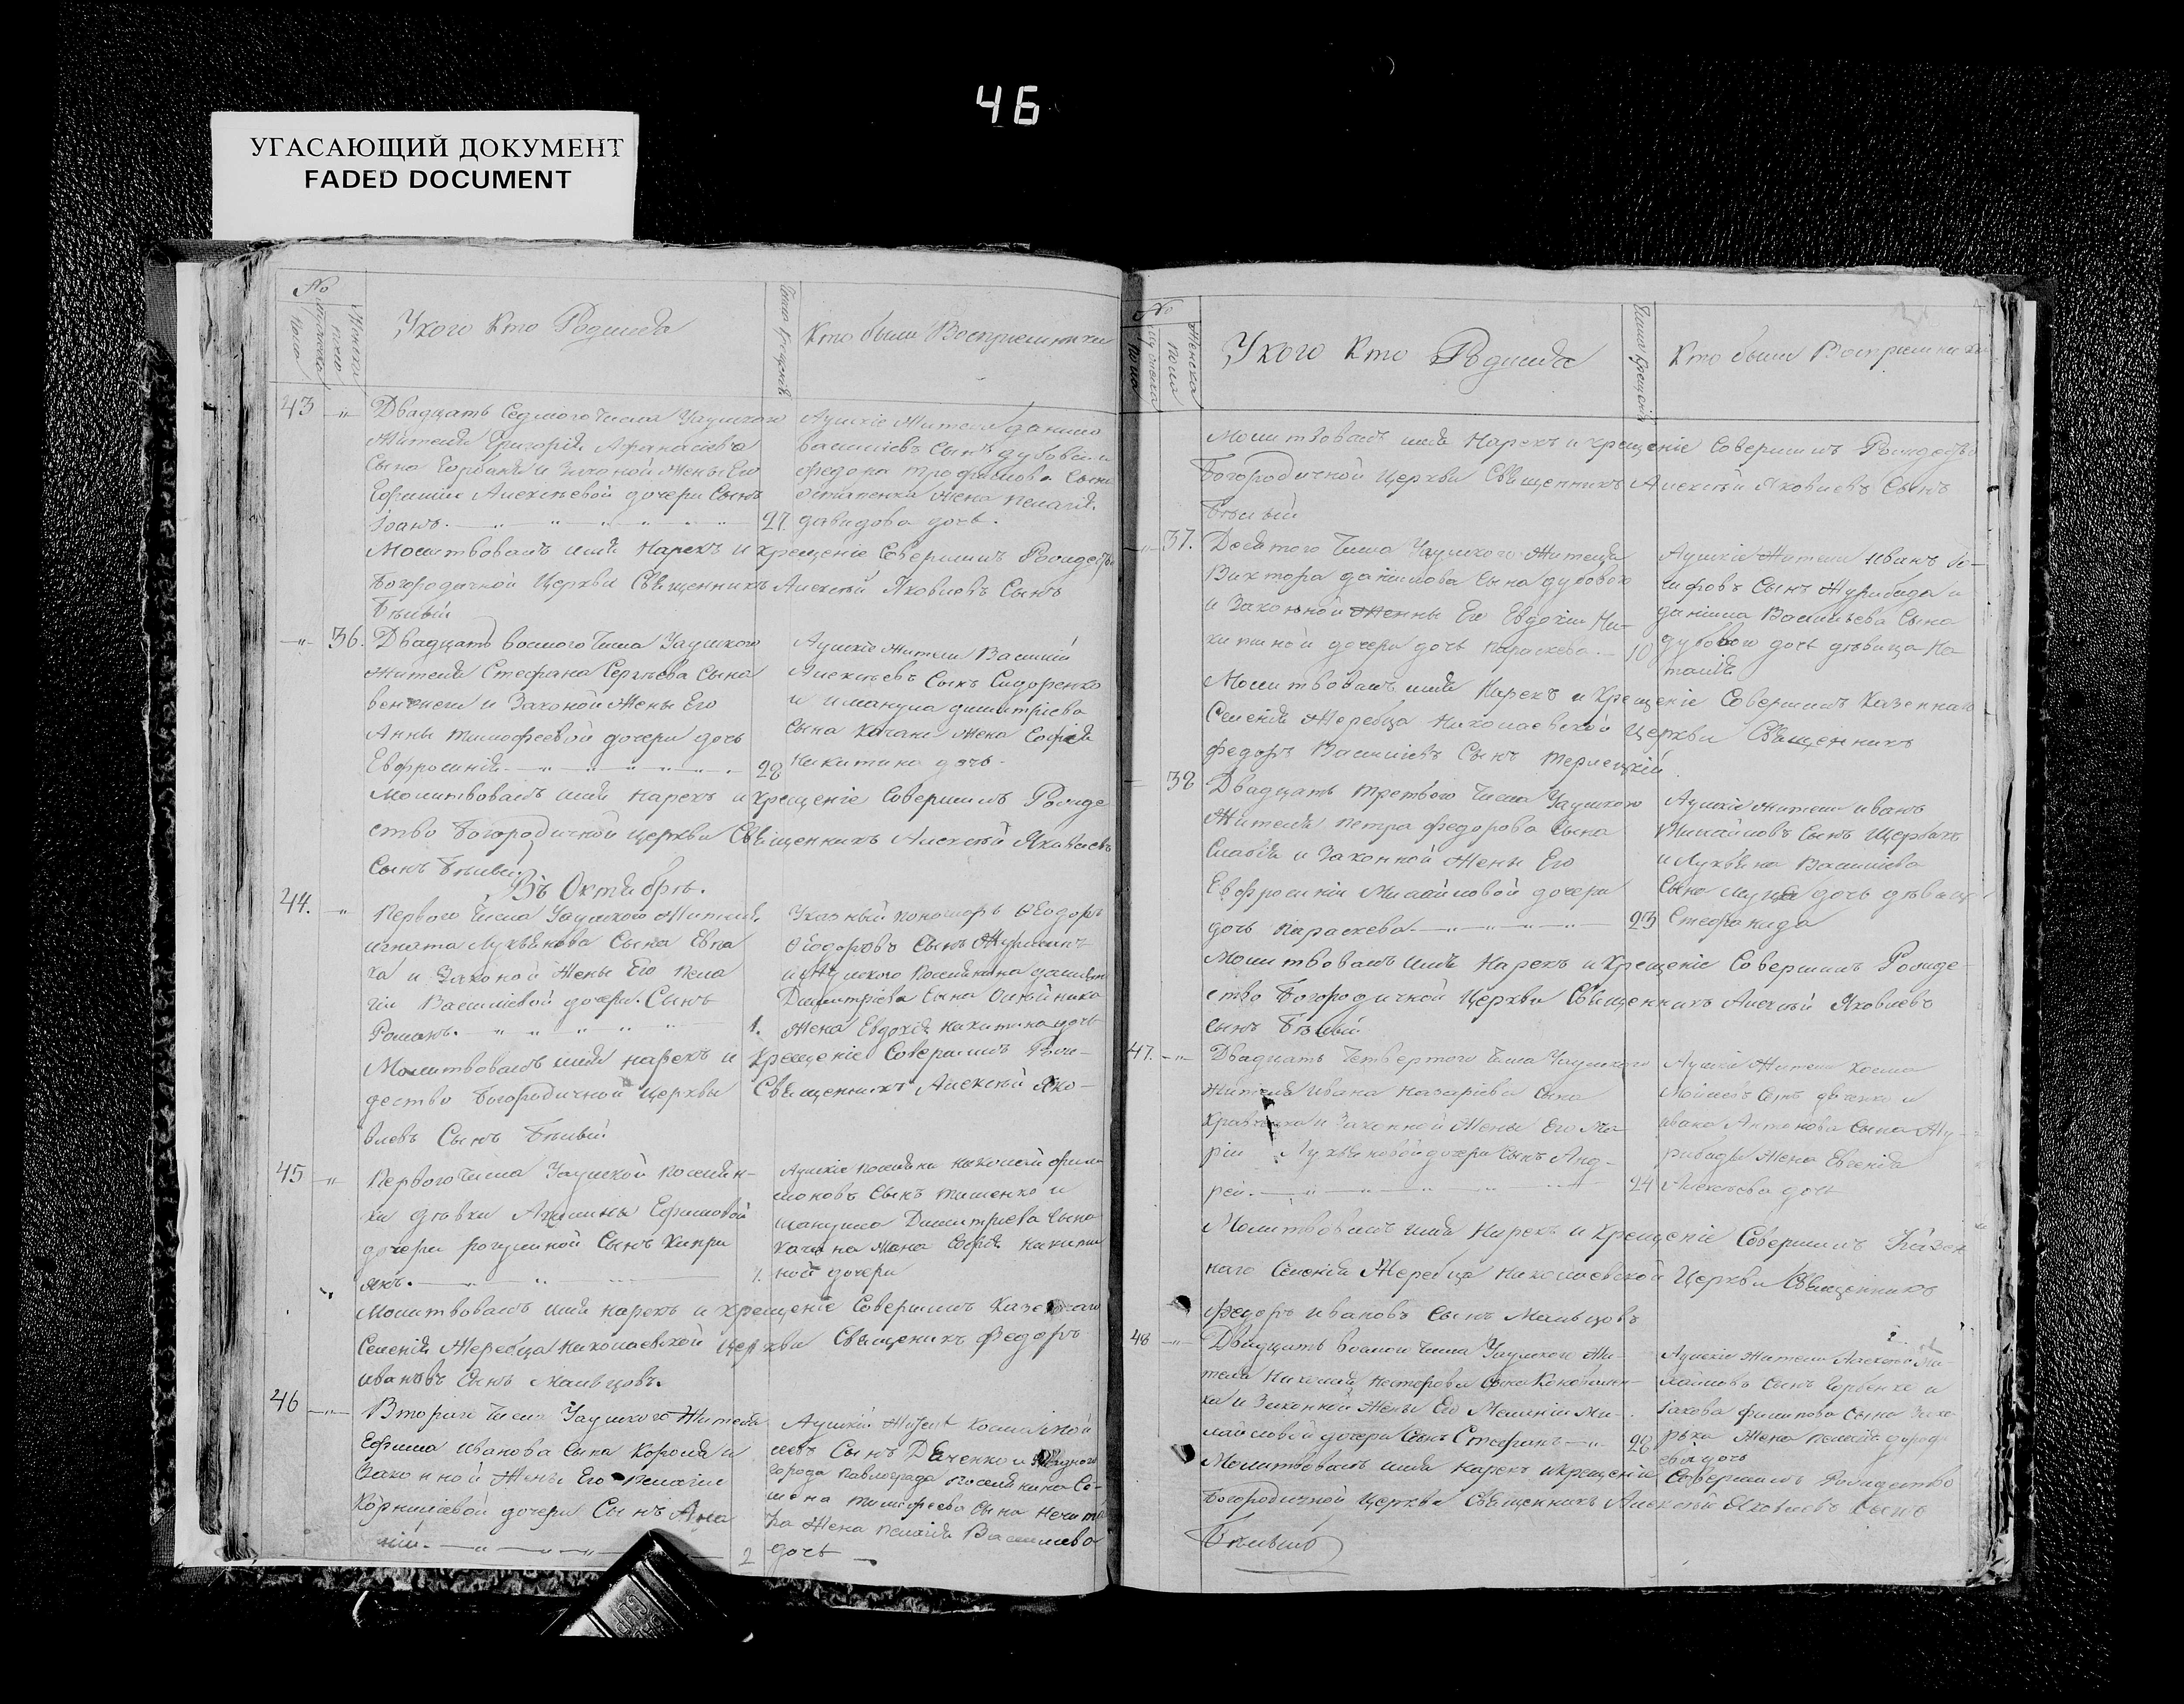 46
УГАСАЮЩИЙ ДОКУМЕНТ
FADED DOCUMENT
№
Мужеска пола
Женска пола
У кого кто Родился
Число Крещенія
Кто были Восприемники
43 Двадцать Седмого Числа
Жителя Григорія Афанасіева
Сына Горбаня и Законой Жены Его
Ефиміи Алексѣевой дочери Сынъ
Іоанъ. 27
Жители данило
василіевъ Сынъ дубовой и
федора трофимова Сына
остапенка Жена Пелагія
давидова дочь.
Молитвовалъ имя Нарекъ и крещеніе Совершилъ Рождество
Богородичной Церкви Священникъ Алексѣй Яковлевъ Сынъ
Бѣлый
36. Двадцать восмого Числа
Жителя Стефана Сергѣева Сына
и Законой Жены Его
Анны тимофеевой дочери дочь
Евфросинія 28
Жители Василій
Алексѣевъ Сынъ Сидоренко
и имануила димитріева
Сына Качана Жена Софія
Никитина дочь.
Молитвовалъ имя нарекъ и крещеніе Совершилъ Рожде
ство Богородичной церкви Священникъ Алексѣй Яковлевъ
Сынъ Бѣлый.
Въ Октябрѣ.
44. Первого Числа Жителя
игната Лукьянова Сына
и Законой Жены Его Пела
гіи Василіевой дочери. Сынъ
Романъ. 1.
Указный пономарь Ѳеодоръ
Ѳеодоровъ Сынъ
Димитріева Сына Олѣйника
Жена Евдокія Никитина дочь
Молитвовалъ имя нарекъ и Крещеніе Совершилъ Рож-
дество Богородичной Церквы Священникъ Алексѣй Яко-
влевъ Сынъ Бѣлый.
45 Первого Числа
дѣвки Акилины Ефимовой
дочери Сынъ Кипри
янъ.
Николай фили
моновъ Сынъ тишенко и
мануила Димитріева Сына
Качана Жена Софія Никити
ной дочери
Молитвовалъ имя нарекъ и крещеніе Совершилъ Казеннаго
Селенія Жеребца Николаевской Церкви Священикъ Федоръ
ивановъ Сынъ Мальцовъ.
46 Втораго Числа Жителя
Ефима иванова Сына Короля и
Законной Жены Его Пелагіи
Корниліевой дочери Сынъ Ана
ній. 2
Косма
Сынъ Дяченко и
города Павлограда
тимофеева Сына
Жена Пелагія Василіева
дочь
№
Мужеска пола
Женска пола
У кого кто Родился
Число Крещенія
Кто были Восприемники
Молитвовалъ имя Нарекъ и крещеніе Совершилъ Рождество
Богородичной Церкви Священникъ Алексѣй Яковлевъ Сынъ
Бѣлый
37. Десятого Числа Жителя
Виктора данилова Сына дубового
и Законной Женны Его Евдокіи Ни-
китиной дочери дочь Параскева. 10
Жители иванъ Іо-
сифовъ Сынъ Журибида и
даніила Василіева Сына
дубового дочь дѣвица На
талія
Молитвовалъ имя Нарекъ и Крещеніе Совершилъ Казеннаго
Селенія Жеребца Николаевской Церкви Священникъ
федоръ Василіевъ Сынъ терлецкій.
38 Двадцать третьего Числа
Жителя петра федорова Сына
и Законной Жены Его
Евфросиніи Михайловой дочери
дочь Параскева. 23
Жители иванъ
Михайловъ Сынъ Щербакъ
и Лукьяна Василіева
Сына дочь дѣвица
Стефанида
Молитвовалъ имя Нарекъ и Крещеніе Совершилъ Рожде-
ство Богородичной Церкви Священникъ Алексѣй Яковлевъ
Сынъ Бѣлый
47. Двадцать Четвертого Числа
Жителя ивана Назаріева Сына
и Законной Жены Его Ма
ріи Лукьяновой дочери Сынъ Анд-
рей. 24
Жители Косма
Сынъ дяченко и
ивана Антонова Сына Жу-
рибиды Жена Евгенія
Алексѣева дочь
Молитвовалъ имя Нарекъ и Крещеніе Совершилъ Казен
наго Селенія Жеребца Николаевской Церкви Священникъ
федоръ ивановъ Сынъ Мальцовъ
48 Двадцать восмого Числа Жи-
теля Николая Нестерова Сына
и Законной Жены Его Меланіи Ми-
хайловой дочери Сынъ Стефанъ 28
Жители Алексѣй Ми-
хайловъ Сынъ Горбенко и
Іакова филипова Сына
Жена Пелагія
дочь
Молитвовалъ имя нарекъ и крещеніе Совершилъ Рождество
Богородичной Церкви Священникъ Алексѣй Яковлевъ Сынъ
Бѣлый